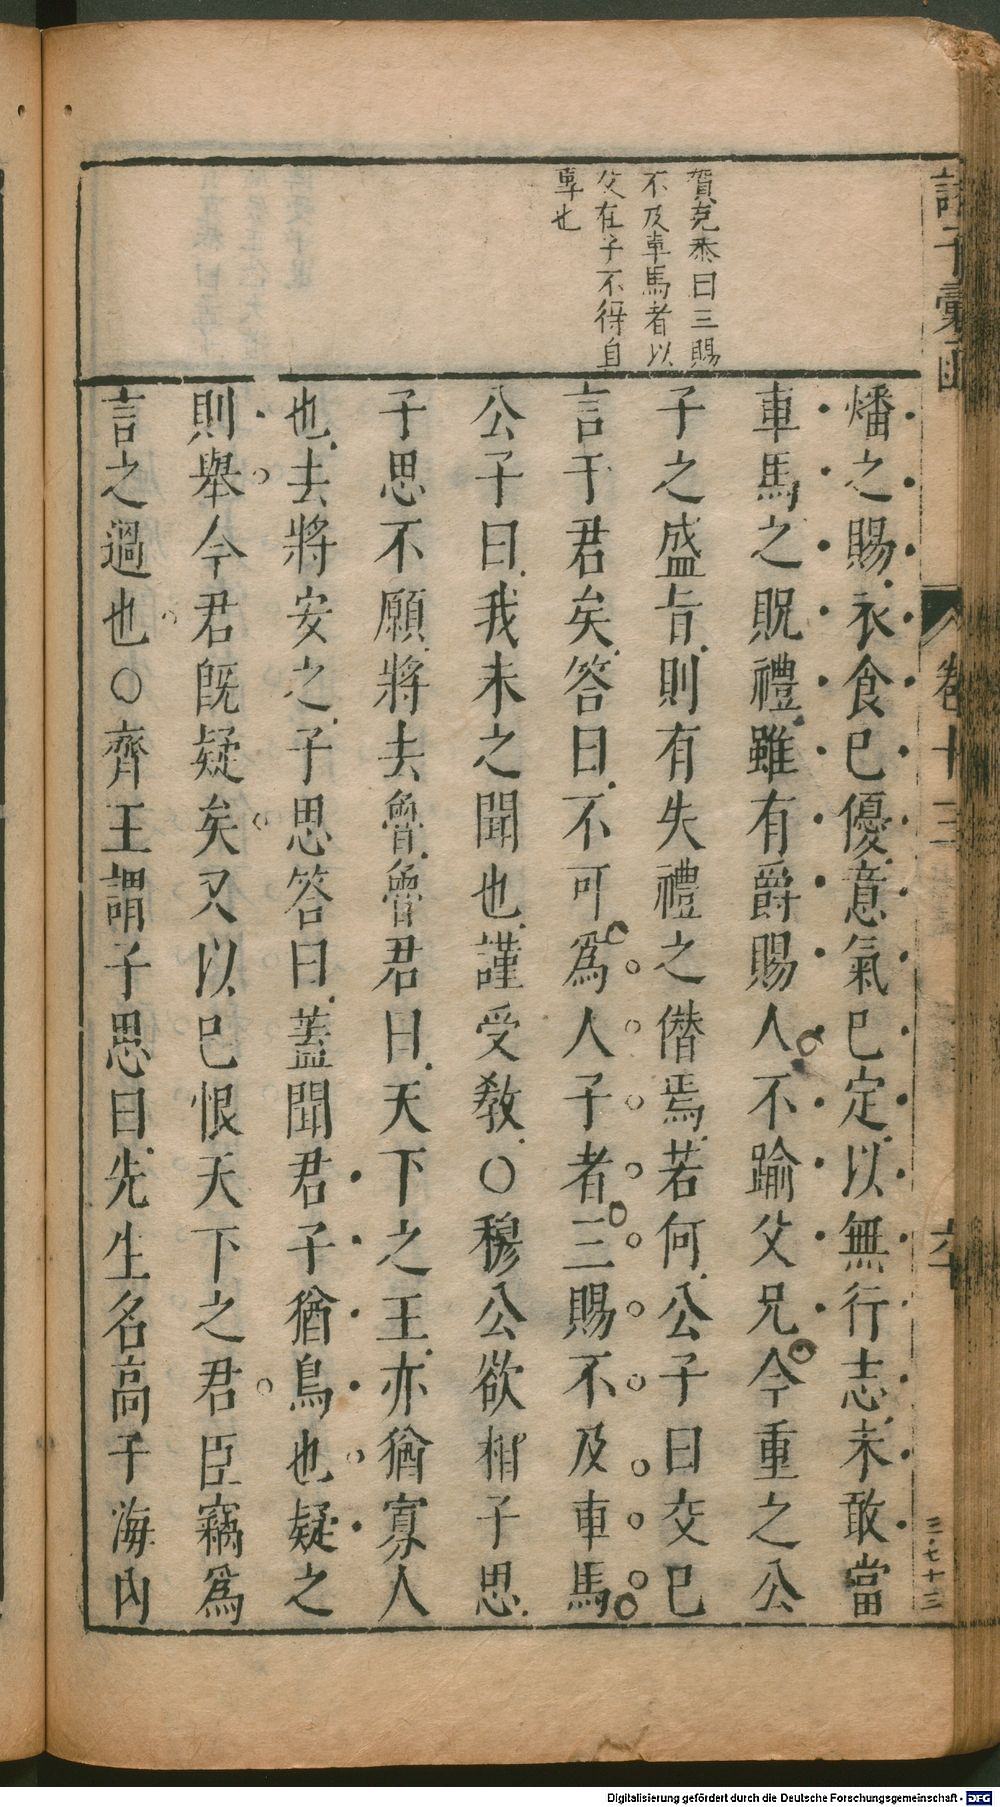 諸子彙函
卷十三
六十
三七十三
賀克恭曰三賜
不及車馬者以
父在子不得自
專也
燔之賜衣食已優意氣已定以無行志未敢當
車馬之貺禮雖有爵賜人不踰父兄今重之公
子之盛旨則有失禮之僭焉若何公子曰交已
言于君矣答曰不可爲人子者三賜不及車馬
公子曰我未之聞也謹受敎○穆公欲相子思
子思不願將去魯魯君曰天下之王亦猶寡人
也去將安之子思答曰蓋聞君子猶鳥也疑之
則舉今君旣疑矣又以已恨天下之君臣竊爲
言之過也○齊王謂子思曰先生名高于海內
Digitalisierung gefördert durch die Deutsche Forschungsgemeinschaft - DFG